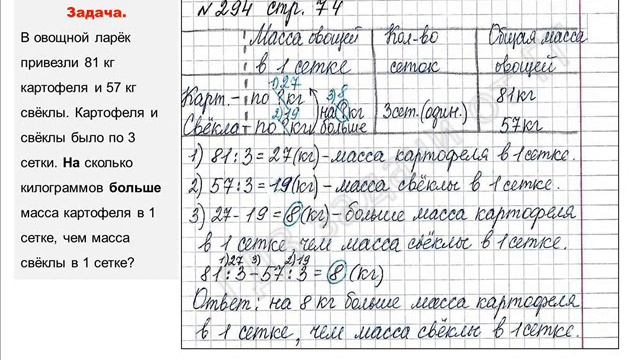 Задача.
В овощной ларёк
привезли 81 кг
картофеля и 57 кг
свёклы. Картофеля и
свёклы было по 3
сетки. На сколько
килограммов больше
масса картофеля в 1
сетке, чем масса
свёклы в 1 сетке?
№294 стр. 74
Масса овощей Кол-во Общая масса
в 1 сетке сеток овощей
1)27 3)8
Карт.- по ? кг 81кг
2)19 на ? кг 3сет.(один.)
Свёкла- по ? кг больше 57кг
1) 81:3=27(кг)-масса картофеля в 1 сетке.
2) 57:3=19(кг)-масса свёклы в 1 сетке.
3) 27-19=8(кг)-больше масса картофеля
в 1 сетке, чем масса свёклы в 1 сетке.
1)27 3) 2)19
81:3-57:3=8 (кг)
Ответ: на 8 кг больше масса картофеля
в 1 сетке, чем масса свёклы в 1 сетке.